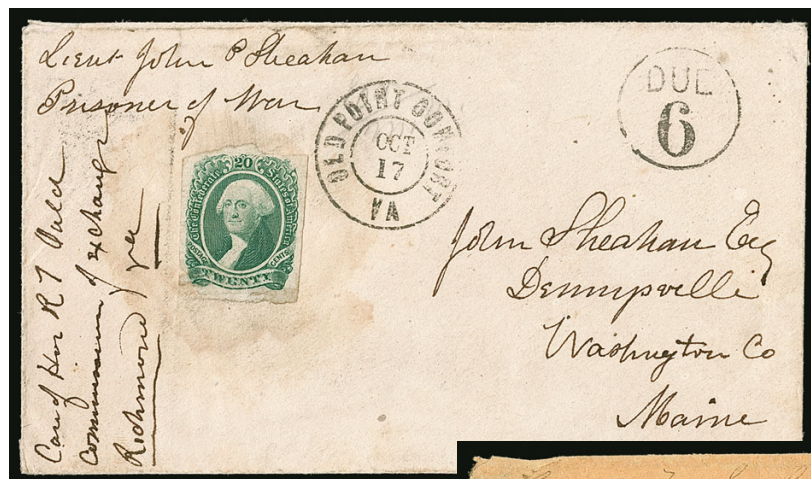 Lieut John P Sheahan
Prisoner of War
Care of Hon R Ould
Commissioner of Exchange
Richmond Va
20
The Confederate States of America
TWENTY
CENTS
OLD POINT COMFORT
OCT
17
VA
DUE
6
John Sheahan Esq
Dennysville
Washington Co
Maine